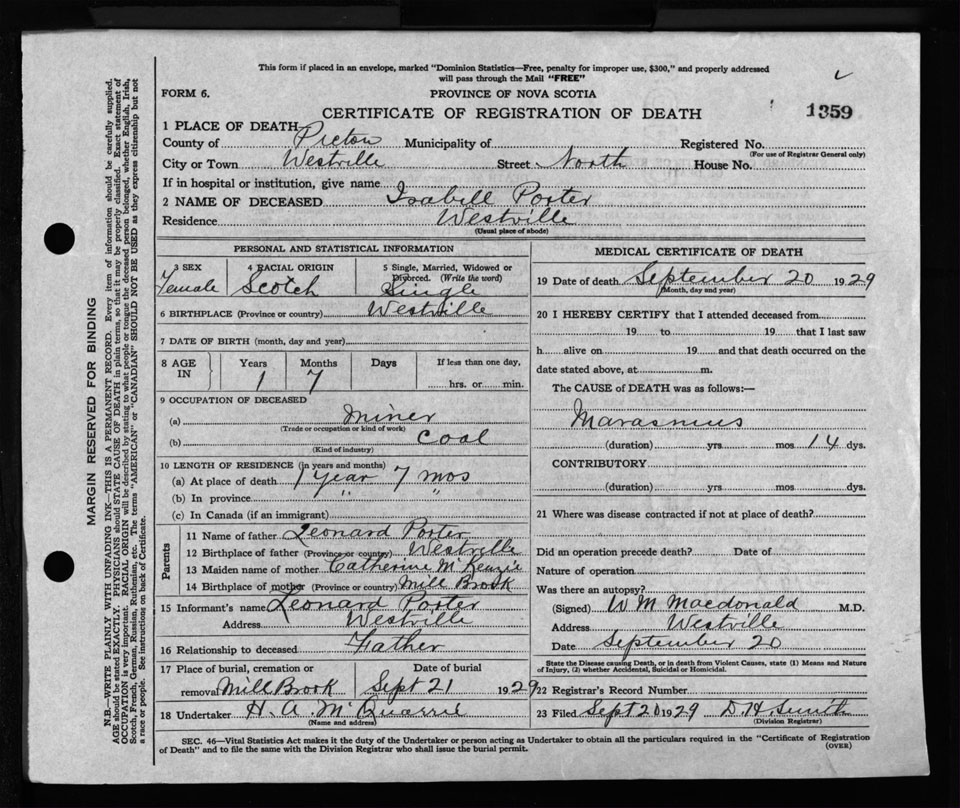 This form if placed in an envelope, marked "Dominion Statistics—Free, penalty for improper use, $300," and properly addressed
will pass through the Mail "FREE"
FORM 6.
PROVINCE OF NOVA SCOTIA
CERTIFICATE OF REGISTRATION OF DEATH
1359
1 PLACE OF DEATH
County of Pictou Municipality of Registered No.
(For use of Registrar General only)
City or Town Westville Street North House No.
If in hospital or institution, give name
2 NAME OF DECEASED Isabell Porter
Residence Westville
(Usual place of abode)
PERSONAL AND STATISTICAL INFORMATION
3 SEX 4 RACIAL ORIGIN 5 Single, Married, Widowed or
Divorced. (Write the word)
Female Scotch Single
6 BIRTHPLACE (Province or country) Westville
7 DATE OF BIRTH (month, day and year)
8 AGE IN Years Months Days If less than one day,
1 7 hrs. or min.
9 OCCUPATION OF DECEASED
(a) miner
(Trade or occupation or kind of work)
(b) Coal
(Kind of industry)
10 LENGTH OF RESIDENCE (in years and months)
(a) At place of death 1 year 7 mos
(b) In province " "
(c) In Canada (if an immigrant)
Parents
11 Name of father Leonard Porter
12 Birthplace of father (Province or country) Westville
13 Maiden name of mother Catherine McKenzie
14 Birthplace of mother (Province or country) Mill Brook
15 Informant's name Leonard Porter
Address Westville
16 Relationship to deceased Father
17 Place of burial, cremation or Date of burial
removal Mill Brook Sept 21 1929
18 Undertaker H. A. McQuarrie
(Name and address)
MEDICAL CERTIFICATE OF DEATH
19 Date of death September 20 1929
(Month, day and year)
20 I HEREBY CERTIFY that I attended deceased from
19 to 19 that I last saw
h alive on 19 and that death occurred on the
date stated above, at m.
The CAUSE of DEATH was as follows:—
Marasmus
(duration) yrs. mos 14 dys.
CONTRIBUTORY
(duration) yrs. mos. dys.
21 Where was disease contracted if not at place of death?
Did an operation precede death? Date of
Nature of operation
Was there an autopsy?
(Signed) W M Macdonald M.D.
Address Westville
Date September 20
State the Disease causing Death, or in death from Violent Causes, state (1) Means and Nature
of Injury, (2) whether Accidental, Suicidal or Homicidal.
22 Registrar's Record Number
23 Filed Sept 20 1929 D H Smith
(Division Registrar)
SEC. 46—Vital Statistics Act makes it the duty of the Undertaker or person acting as Undertaker to obtain all the particulars required in the "Certificate of Registration
of Death" and to file the same with the Division Registrar who shall issue the burial permit.
(OVER)
MARGIN RESERVED FOR BINDING
N.B.—WRITE PLAINLY WITH UNFADING INK—THIS IS A PERMANENT RECORD. Every item of information should be carefully supplied.
AGE should be stated EXACTLY. PHYSICIANS should STATE CAUSE OF DEATH in plain terms, so that it may be properly classified. Exact statement of
OCCUPATION is very important. RACIAL ORIGIN will be described by stating to what people or tongue the deceased person belonged, whether English, Irish,
Scotch, French, German, Russian, Ruthenian, etc. The terms "AMERICAN" or "CANADIAN" SHOULD NOT BE USED as they express citizenship but not
a race or people. See instructions on back of Certificate.